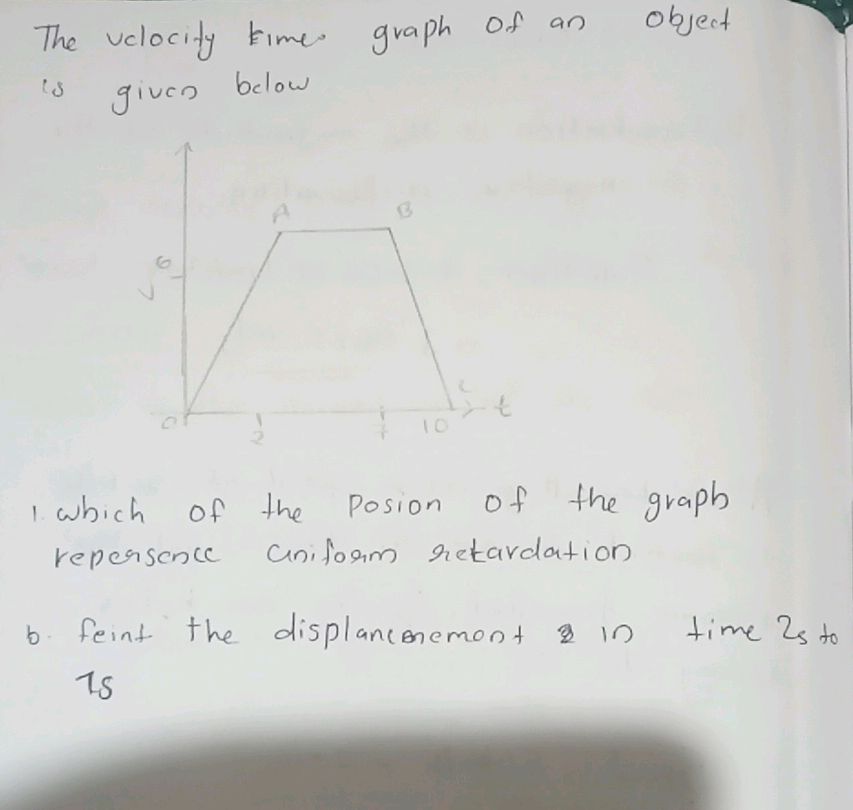 The velocity time graph of an object
is given below
A B
6
v
C
O 2 7 10 t
1. which of the Posion of the graph
repersence uniform retardation
b. feint the displancemement in time 2s to
7s